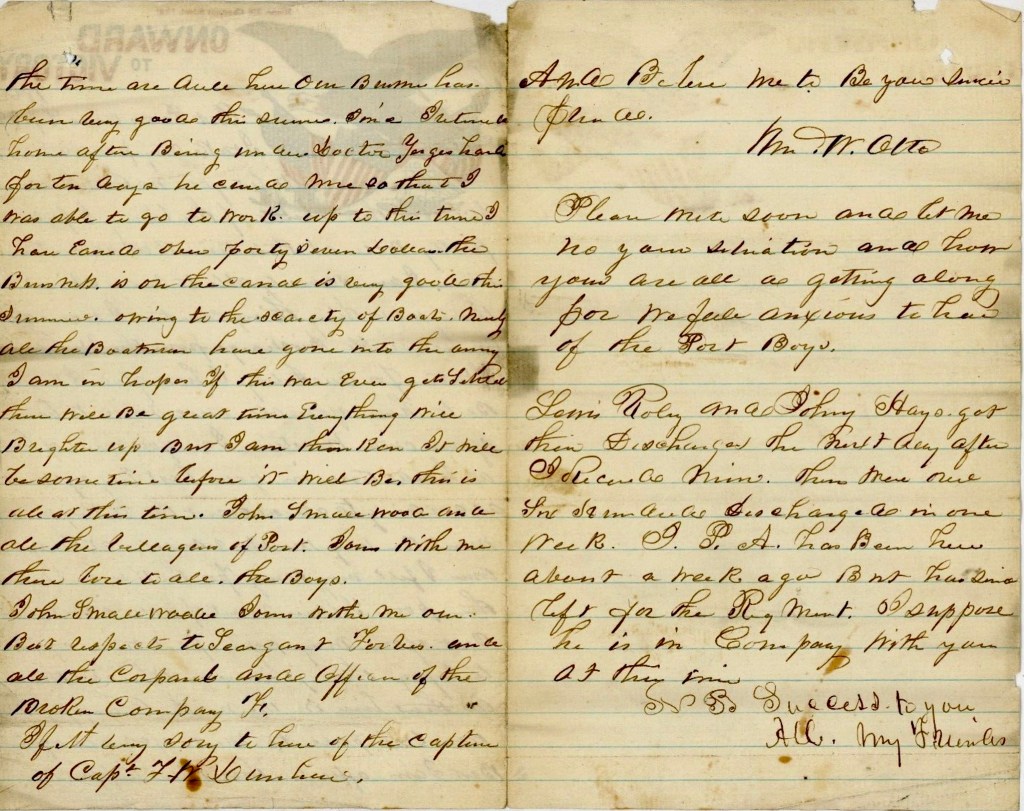 the time are dule here Our Busnes has
been very goode this sumer. Since I returned
home after Being under Doctor Yorges hands
for ten days he cured me so that I
was able to go to work. up to this time I
have Earnd over forty seven Dollars. the
Busness. is on the canal is very goode this
Summer. owing to the. scarcty of Boats. Nearly
all the Boatman have gone into the army
I am in hopes If this war Ever gets Setteled
there will Be great times Everything will
Brighten up But I am thinken It will
be some time before it will Be. this is
all at this time. John Smallwood and
all the villagers of Port. Joins with me
there love to all. the Boys.
John Smallwoode Joins with me our
Best respects to Seargant Forbes. and
all the Corparals and Officers of the
Broken Company F.
I felt very sory to here of the capture
of Capt F W
And Beleve me to Be your sincere
friend.
Wm. W. Otto
Please write soon and let me
no your situation and how
your are all a getting along
for we feele anxious to hear
of the Port Boys.
Lewis Roley and Johny Hays. got
their Discharges the next day after
I Received mine. there were over
Six Hundred Discharged in one
week. J. P. A. has Been here
about a week ago But has since
left for the Regment. I suppose
he is in Company with you
at this time
N B Success. to you
All. My Friends
ONWARD
TO
VICTORY